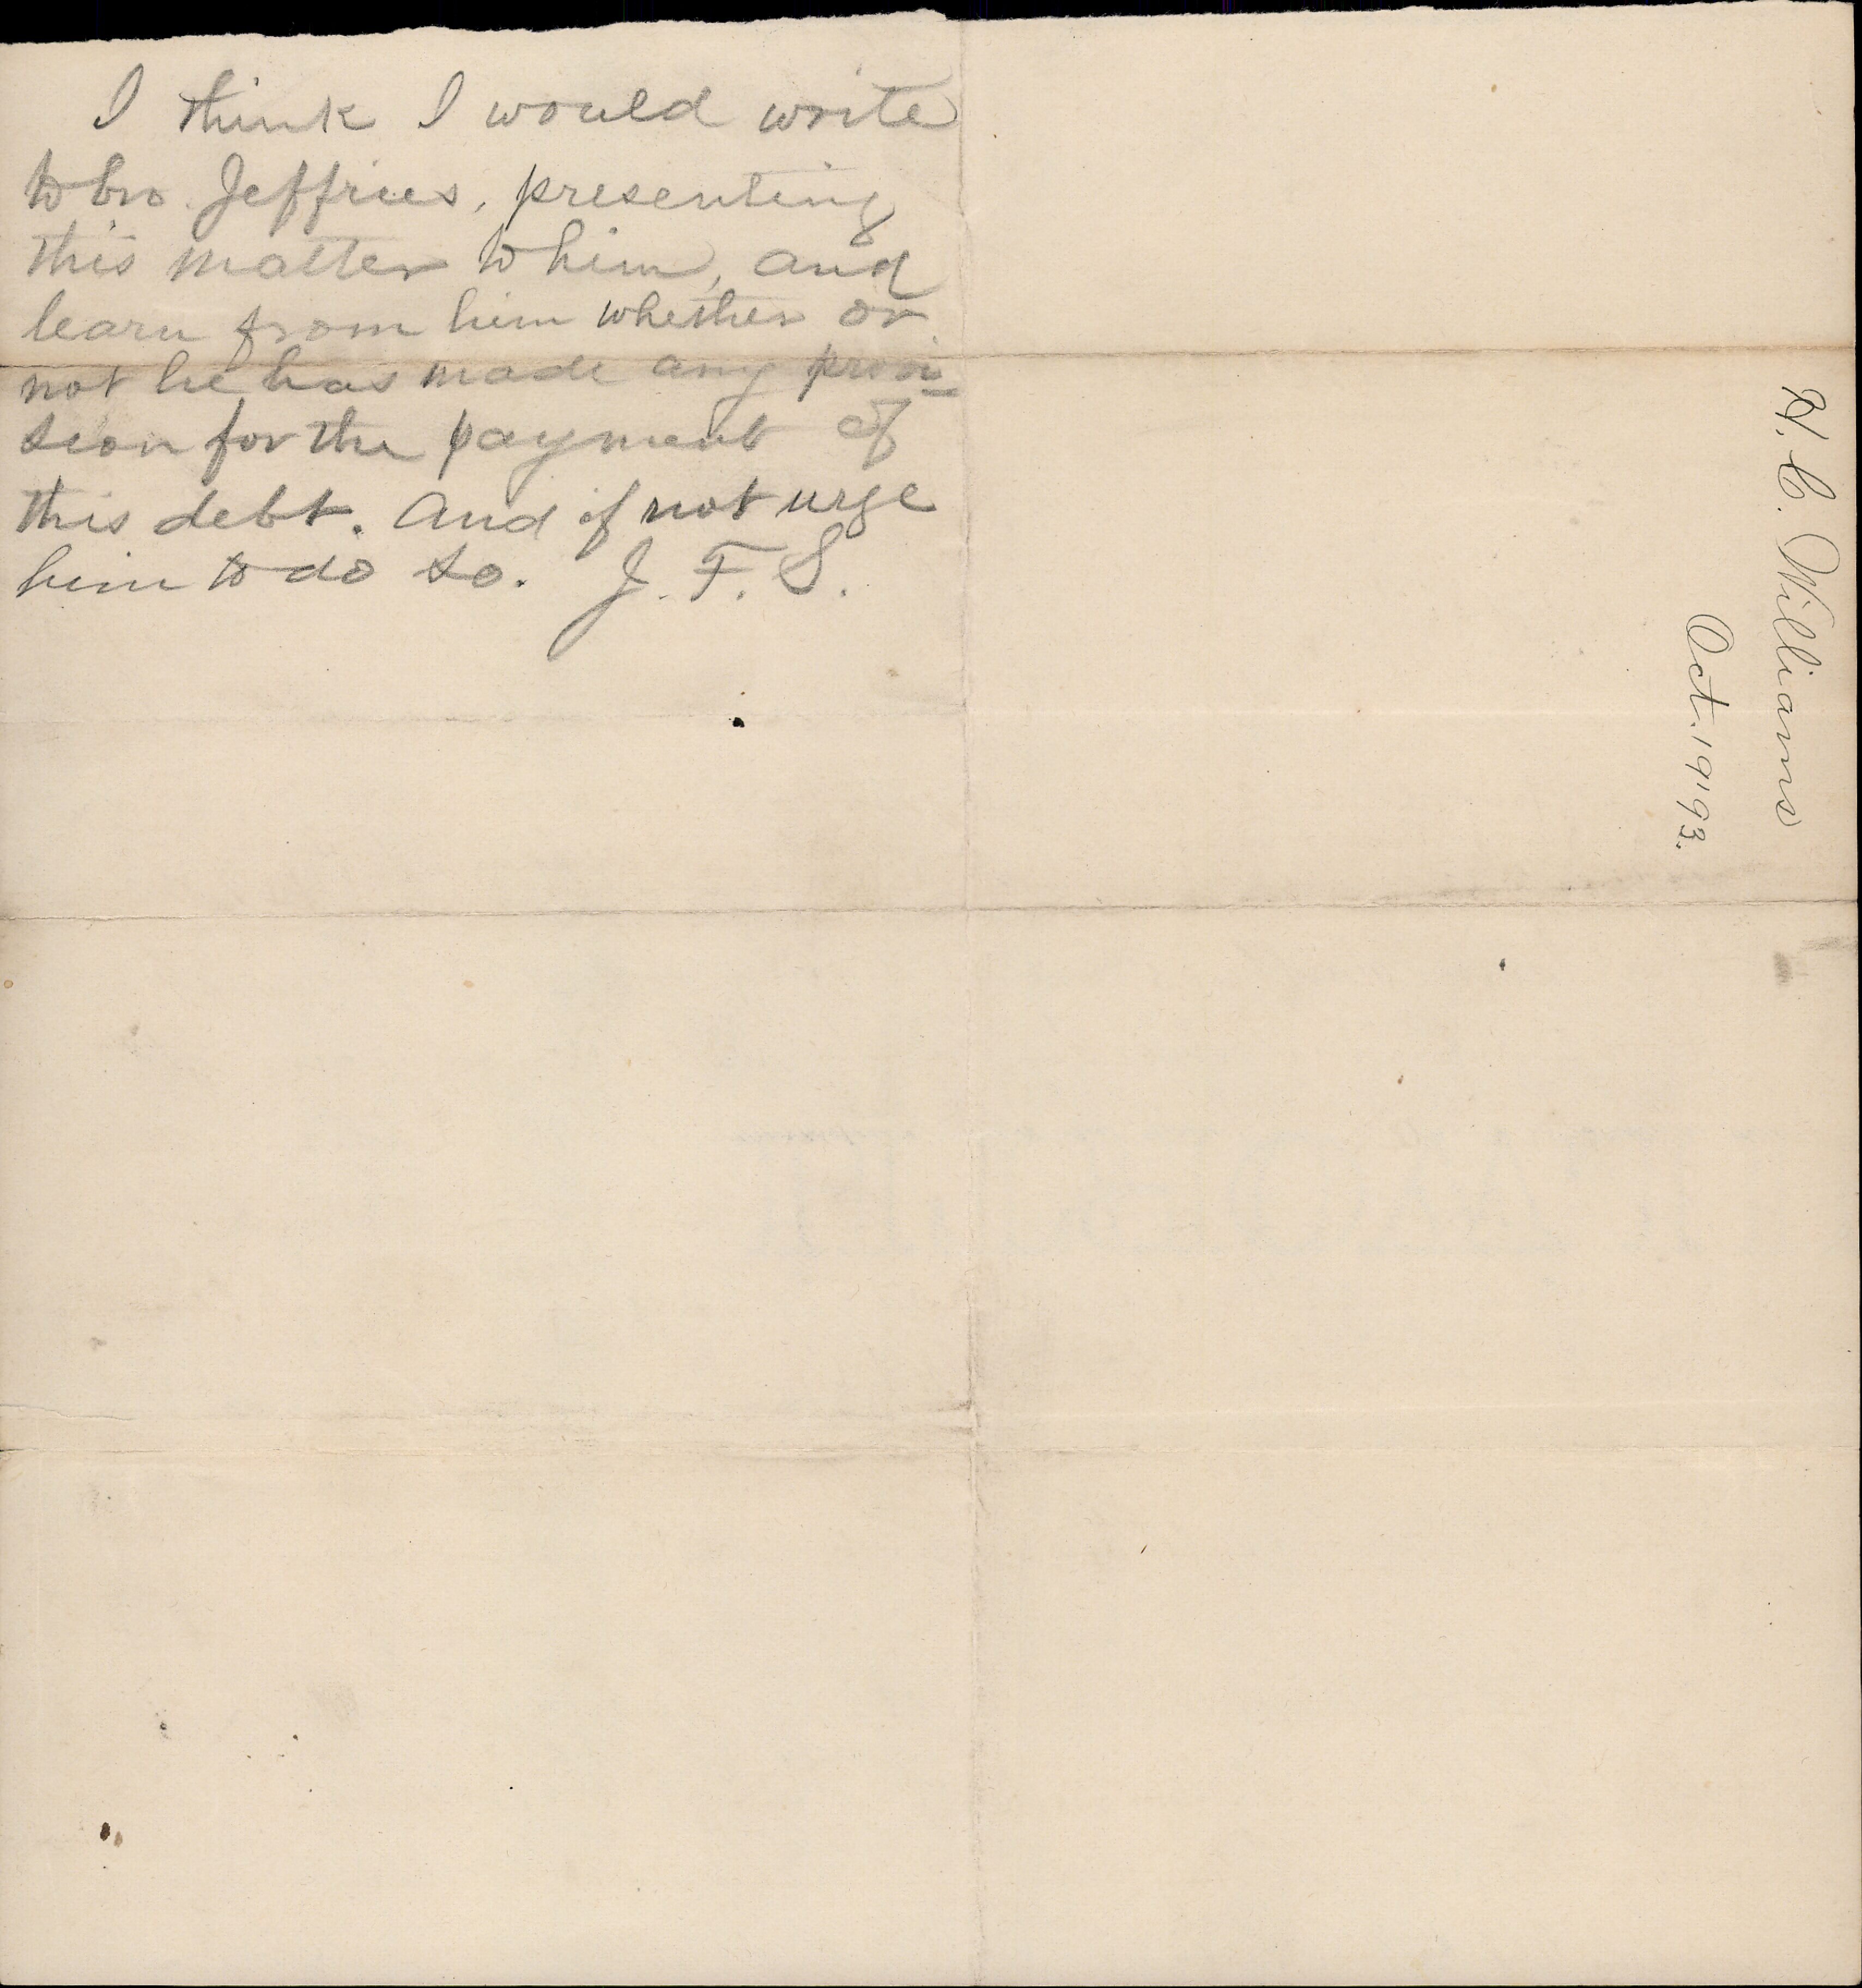 I think I would write
to bro. Jeffries, presenting
this matter to him, and
learn from him whether or
not he has made any provi-
sion for the payment of
this debt. And if not urge
him to do so. J. F. S.
H. C. Williams
Oct. 19'93.